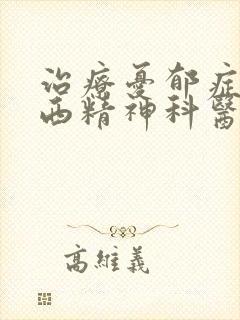 治療憂郁症
西精神科醫
高維義